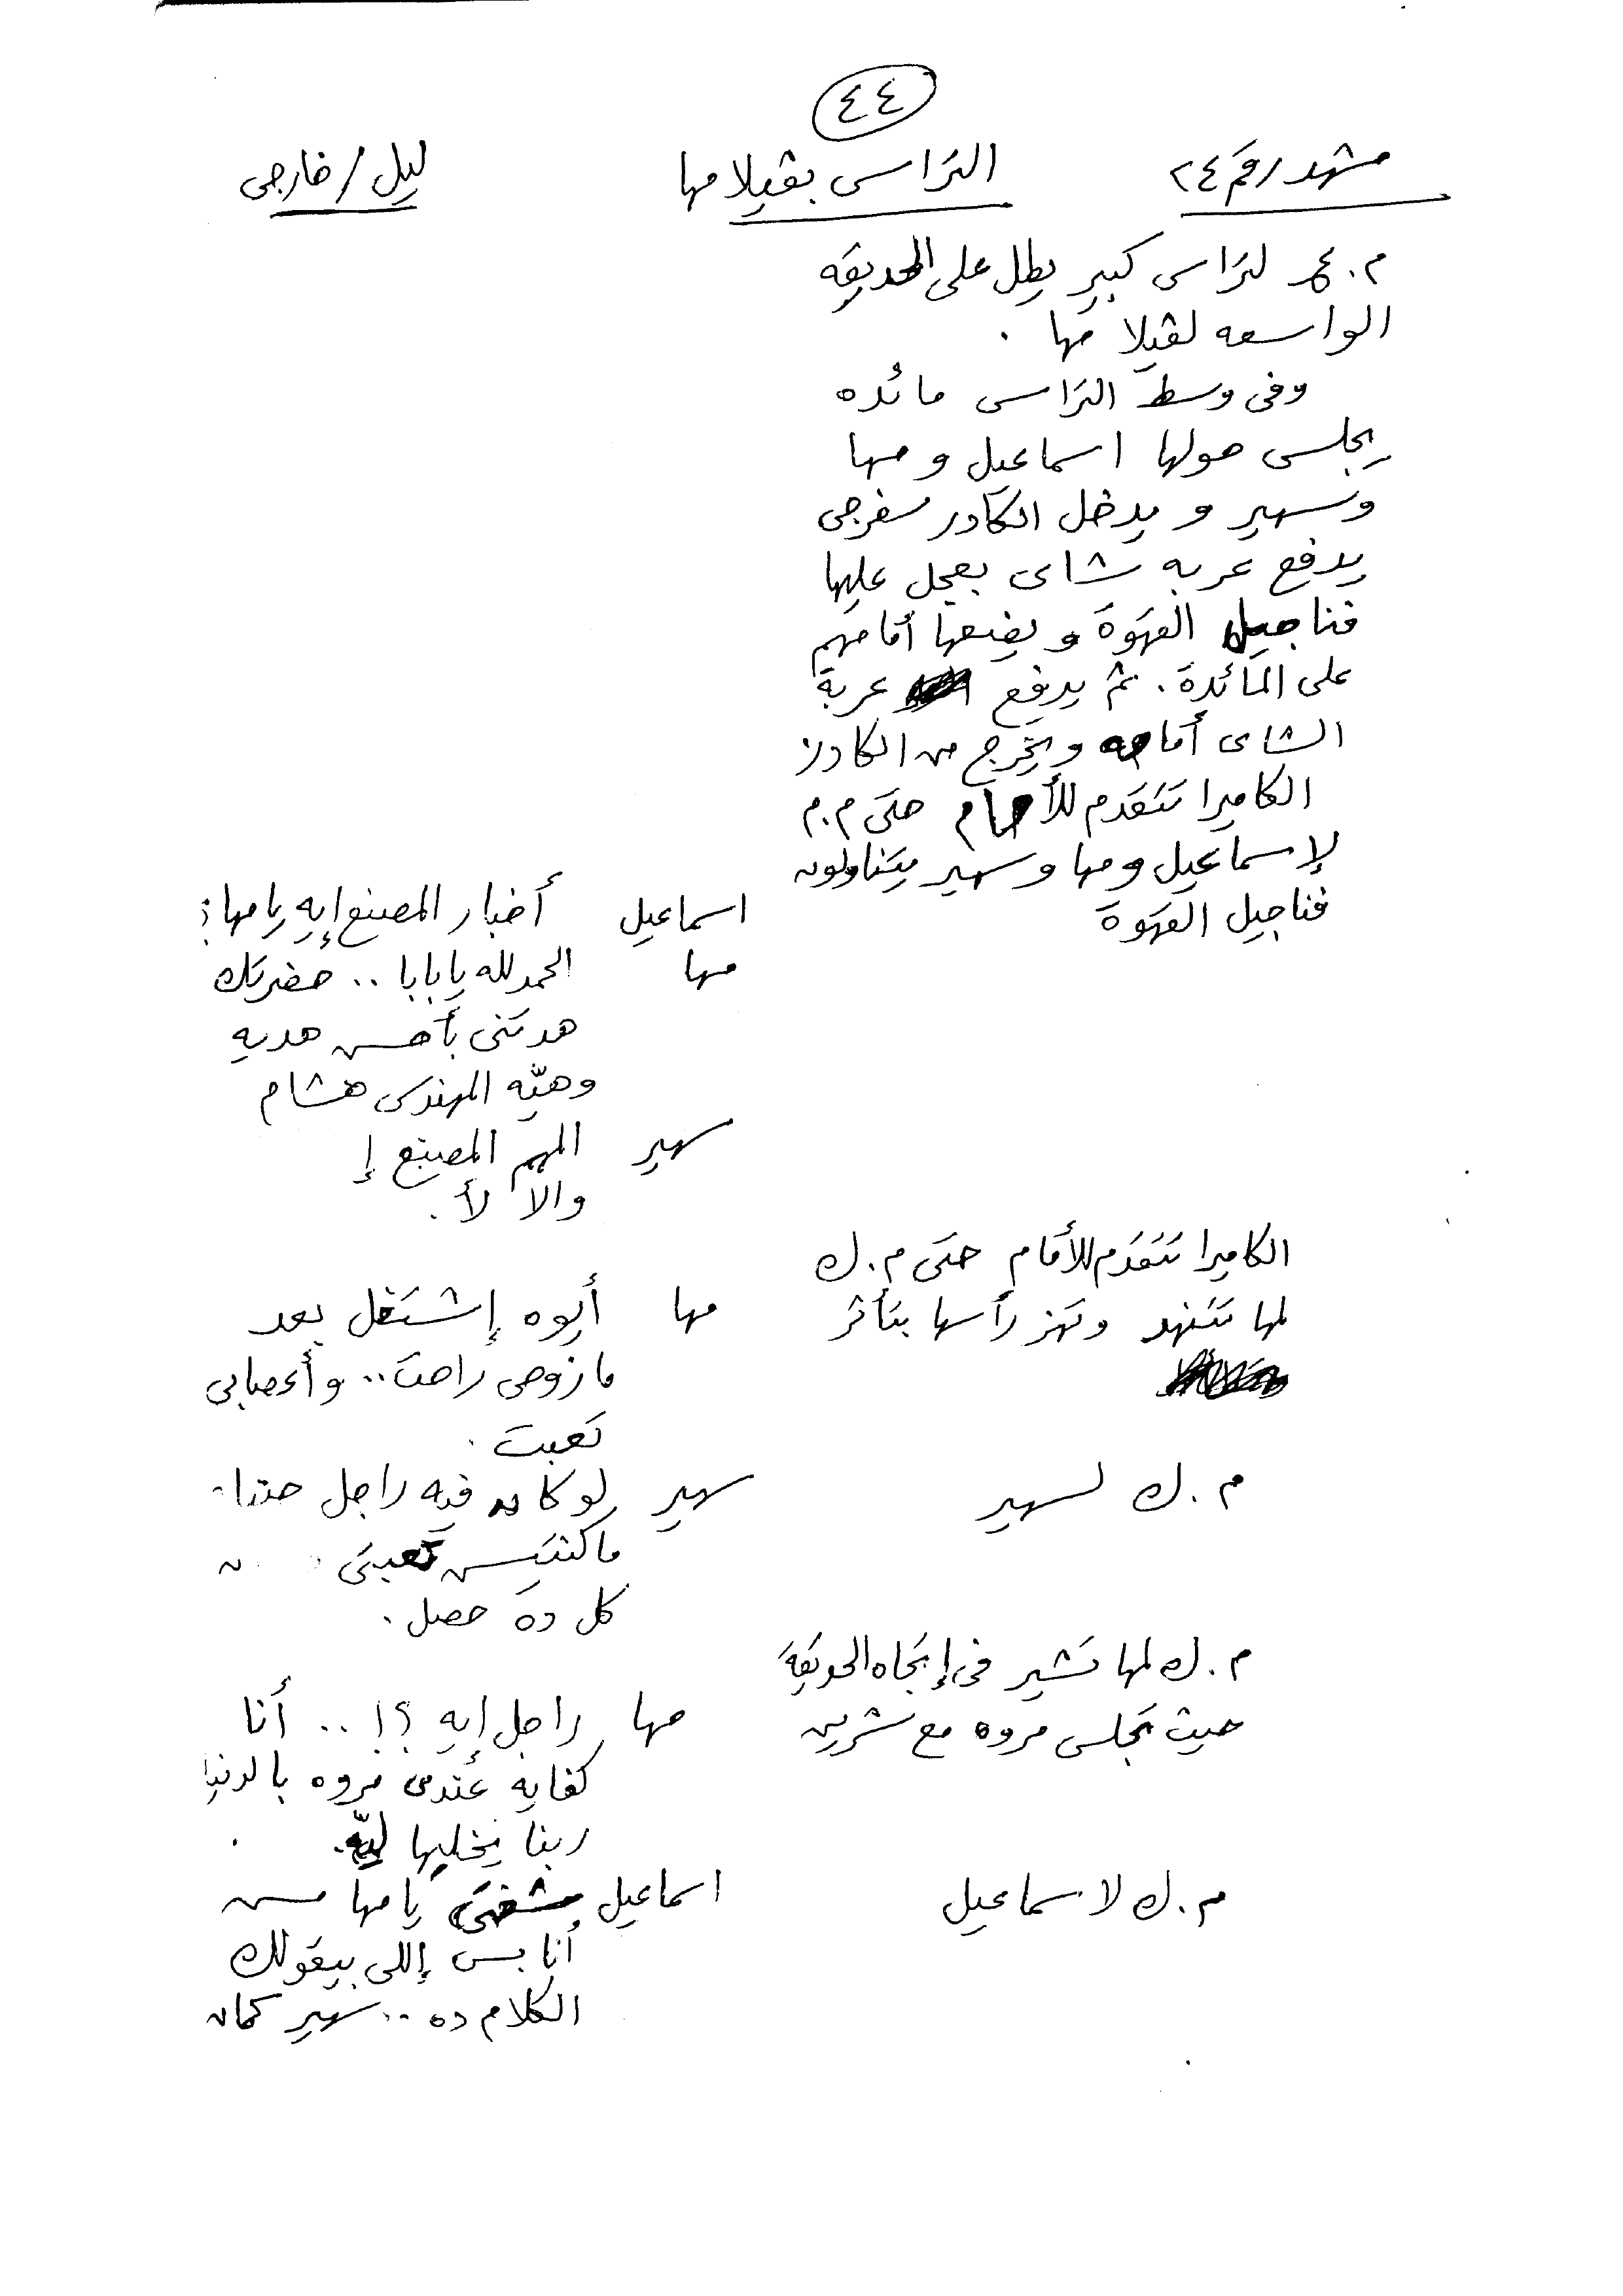 ٤٤
مشهد رقم ٢٤
التراس بڤيلا مها
ليل / خارجى
م. ع لتراس كبير يطل على الحديقه
الواسعه لڤيلا مها .
وفى وسط التراس مائده
يجلس حولها اسماعيل ومها
وسهير و يدخل الكادر سفرجى
يدفع عربه شاى بعجل عليها
فناجيل القهوة و يضعها أمامهم
على المائدة . ثم يدفع عربة
الشاى أمامه ويخرج من الكادر
الكاميرا تتقدم للأمام حتى م.م
لإسماعيل ومها وسهير يتناولون
فناجيل القهوة
اسماعيل أخبار المصنع إيه يامها ؟
مها الحمد لله يابابا .. حضرتك
هدتنى بأحسن هديه
وهيّه المهندس هشام
سهير المهم المصنع إ
والا لأ .
الكاميرا تتقدم للأمام حتى م.ك
لمها تتنهد وتهز رأسها بتأثر
مها أيوه إشتغل بعد
ما زوحى راحت .. وأعصابى
تعبت .
م.ك لسهير
سهير لو كان فيه راجل
ماكنتيش تعبتى
كل ده حصل .
م.ك لمها تشير فى إتجاه الحديقة
حيث تجلس مروه مع شرين
مها راجل إيه ؟! .. أنا
كفايه عندى مروه بالدنيا
ربنا يخليها ليّه .
م.ك لاسماعيل
اسماعيل شفتى يا مها مش
أنا بس إللى بيقولك
الكلام ده .. سهير كمان